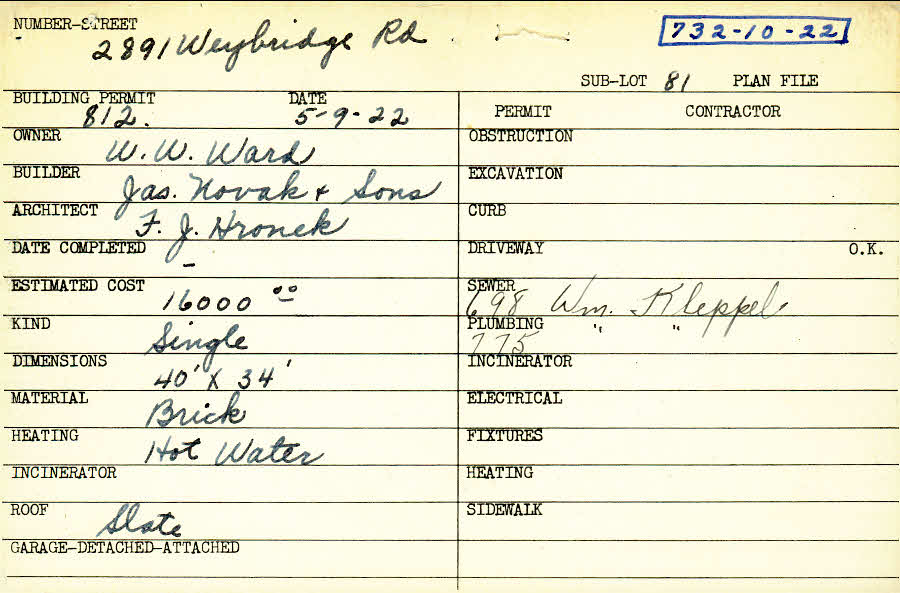 NUMBER-STREET
2891 Weybridge Rd
732-10-22
SUB-LOT 81 PLAN FILE
BUILDING PERMIT DATE
812. 5-9-22
PERMIT CONTRACTOR
OWNER
W. W. Ward
OBSTRUCTION
BUILDER
Jas. Novak & Sons
EXCAVATION
ARCHITECT
F. J. Hronek
CURB
DATE COMPLETED
-
DRIVEWAY O.K.
ESTIMATED COST
16000 00
SEWER
698 Wm. Kleppel
KIND
Single
PLUMBING " "
775
DIMENSIONS
40' X 34'
INCINERATOR
MATERIAL
Brick
ELECTRICAL
HEATING
Hot Water
FIXTURES
INCINERATOR
HEATING
ROOF
Slate
SIDEWALK
GARAGE-DETACHED-ATTACHED